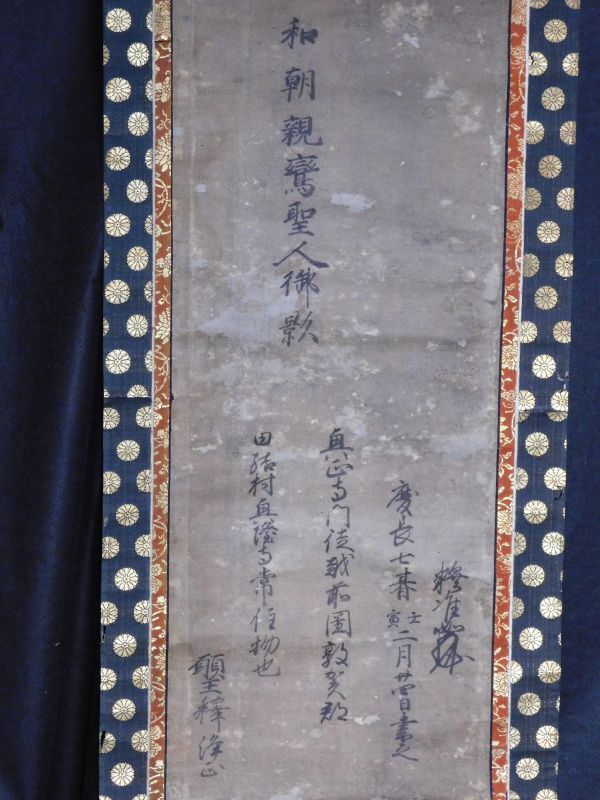 和朝親鸞聖人御影
釋准如
慶長七朞壬寅二月廿四日書之
真正寺門徒越前國敦賀郡
田結村真證寺常住物也
願主釋浄正